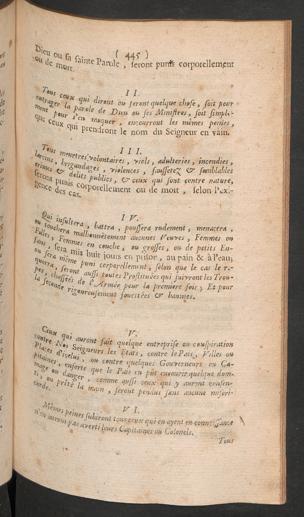 ( 445 )
Dieu ou sa sainte Parole, seront punis corporellement
ou de mort.
II.
Tous ceux qui diront ou feront quelque chose, soit pour
outrager la parole de Dieu ou ses Ministres, soit simple-
ment pour s'en moquer, encourront les mêmes peines,
que ceux qui prendront le nom du Seigneur en vain.
III.
Tous meurtres volontaires, viols, adulteries, incendies,
larcins, brigandages, violences, faussetez & semblables
crimes & delits publics, & ceux qui sont contre nature,
seront punis corporellement ou de mort, selon l'exi-
gence des cas.
IV.
Qui insultera, battra, poussera rudement, menacera
ou touchera malhonnêtement aucunes Veuves, Femmes ou
Filles, Femmes en couche, ou grosses, ou de petits En-
fans, sera mis huit jours en prison, au pain & à l'eau,
ou sera même puni corporellement, selon que le cas le re-
querra, seront aussi toutes Prostituées qui suivront les Trou-
pes, chassées de l'Armée pour la premiere fois, Et pour
la seconde rigoureusement fouettées & bannies.
V.
Ceux qui auront fait quelque entreprise ou conspiration
contre Nos Seigneurs les Etats, contre le Païs, Villes ou
Places d'icelui, ou contre quelques Gouverneurs ou Ca-
pitaines, enforte que le Païs en pût encourir quelque dom-
mage ou danger, comme aussi ceux qui y auront consen-
ti, ou prêté la main, seront pendus sans aucune miseri-
corde.
VI.
Mêmes peines subiront tous ceux qui en ayent en connoissance
n'en auront pas averti leurs Capitaines ou Colonels.
Tous